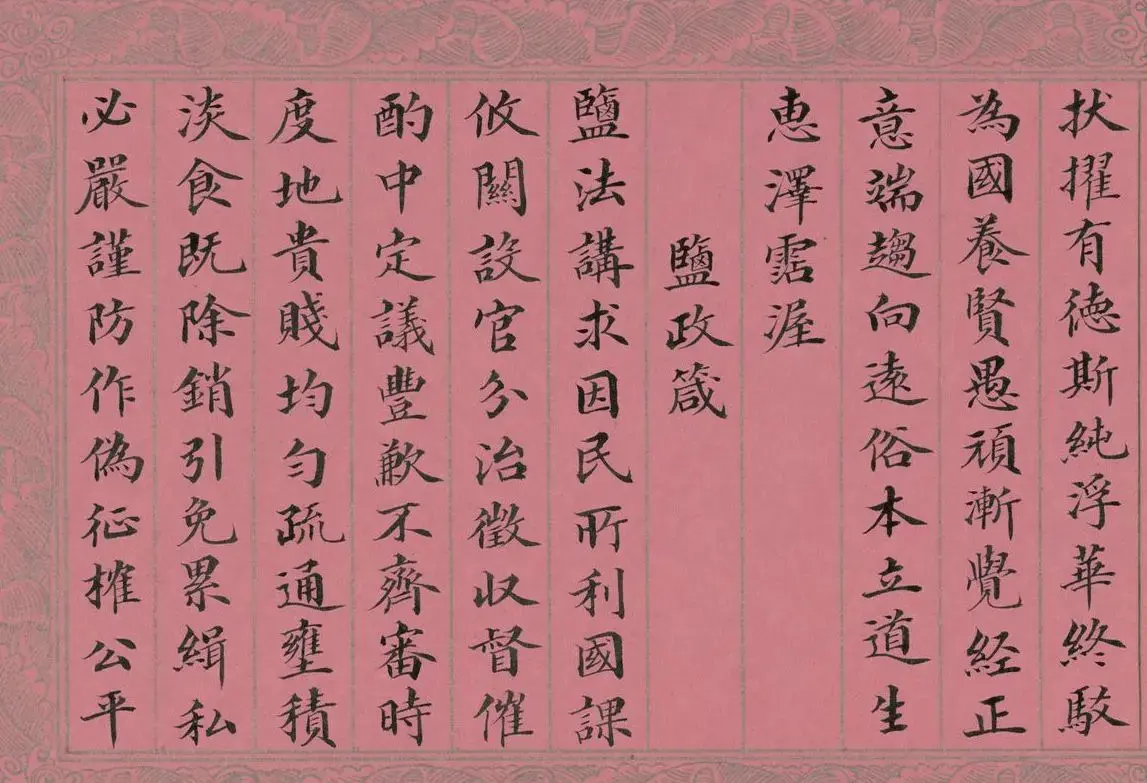 狀擢有徳斯純浮華終駁
為國養賢愚頑漸覺經正
意端趨向遠俗本立道生
恵澤霑渥
鹽政箴
鹽法講求因民所利國課
攸關設官分治徵收督催
酌中定議豐歉不齊審時
度地貴賤均勻疏通壅積
淡食既除銷引免累緝私
必嚴謹防作偽征榷公平